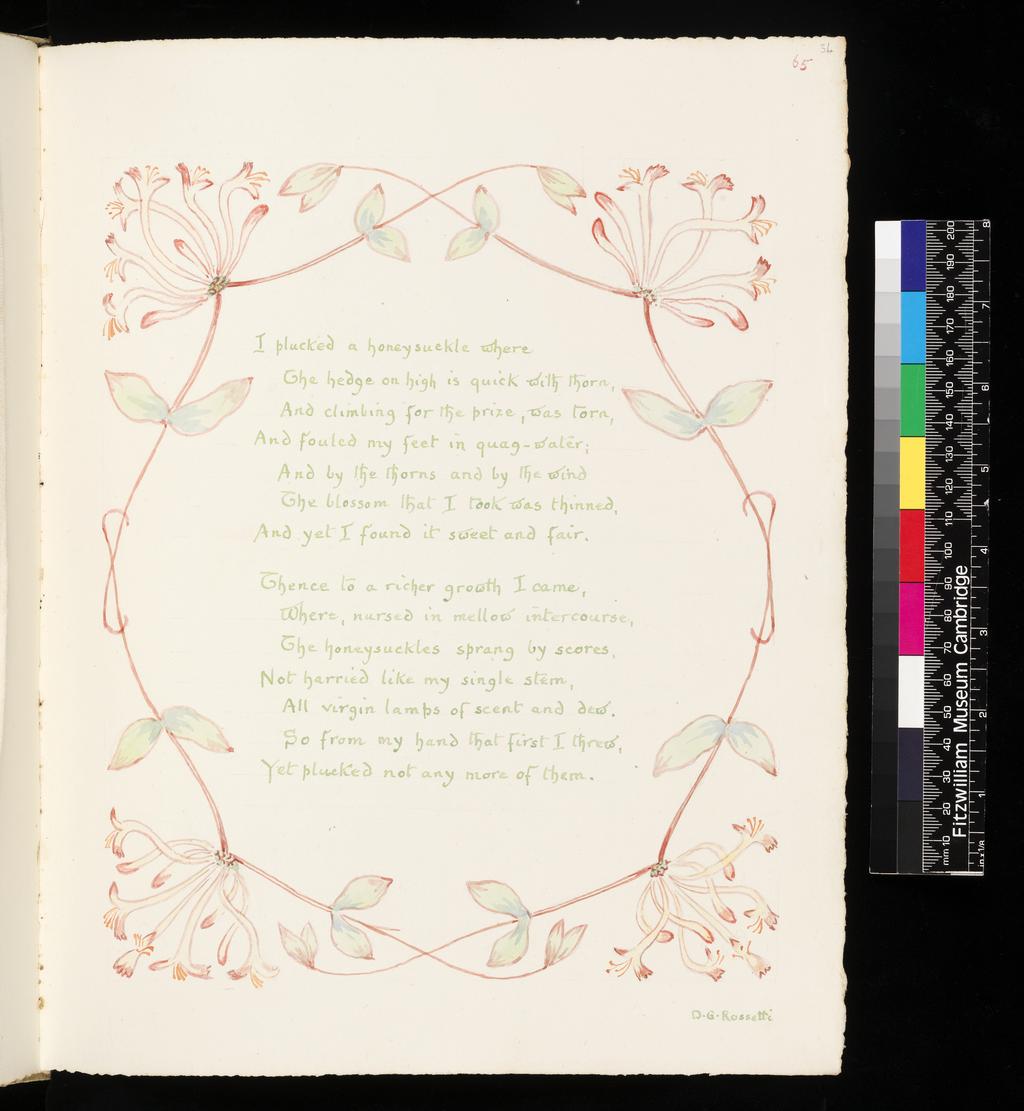 34
65
I plucked a honeysuckle where
The hedge on high is quick with thorn,
And climbing for the prize, was torn,
And fouled my feet in quag-water;
And by the thorns and by the wind
The blossom that I took was thinned,
And yet I found it sweet and fair.
Thence to a richer growth I came,
Where, nursed in mellow intercourse,
The honeysuckles sprang by scores,
Not harried like my single stem,
All virgin lamps of scent and dew.
So from my hand that first I threw,
Yet plucked not any more of them.
D·G·Rossetti
Fitzwilliam Museum Cambridge
mm 10 20 30 40 50 60 70 80 90 100 110 120 130 140 150 160 170 180 190 200
1 2 3 4 5 6 7 8